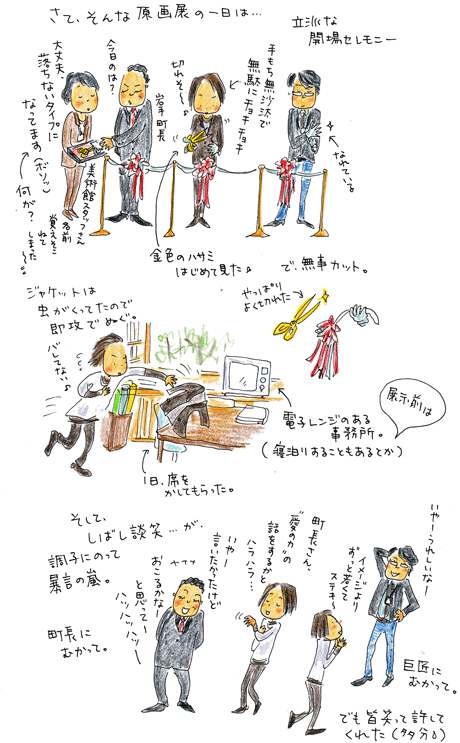 さて、そんな原画展の一日は…
立派な
開場セレモニー
手もち無沙汰で
無駄にチョキチョキ
切れそ〜♪
岩手町長
今日のは?
大丈夫、
落ちないタイプに
なってます(ボソッ)
何が?
美術館スタッフさん
名前
覚えそこ
ねて
しまった〜
なれている。
金色のハサミ
はじめて見た♪
で、無事カット。
やっぱり
よくきれた
ジャケットは
虫がくってたので
即攻でぬぐ。
バレてない♪
電子レンジのある
事務所。
(寝泊りすることもあるとか)
展示前は
1日、席を
かしてもらった。
そして、
しばし談笑…が、
調子にのって
暴言の嵐。
町長に
むかって。
おこるかな
と思ってー
ハッハッハッー
いやー
言いたかったけど
ハラハラ…
町長さん、
"愛の力"の
話をするかと
イメージより
ずっと若くて
ステキ〜
いやーうれしいなー
巨匠に
むかって。
でも皆笑って許して
くれた(多分♪)